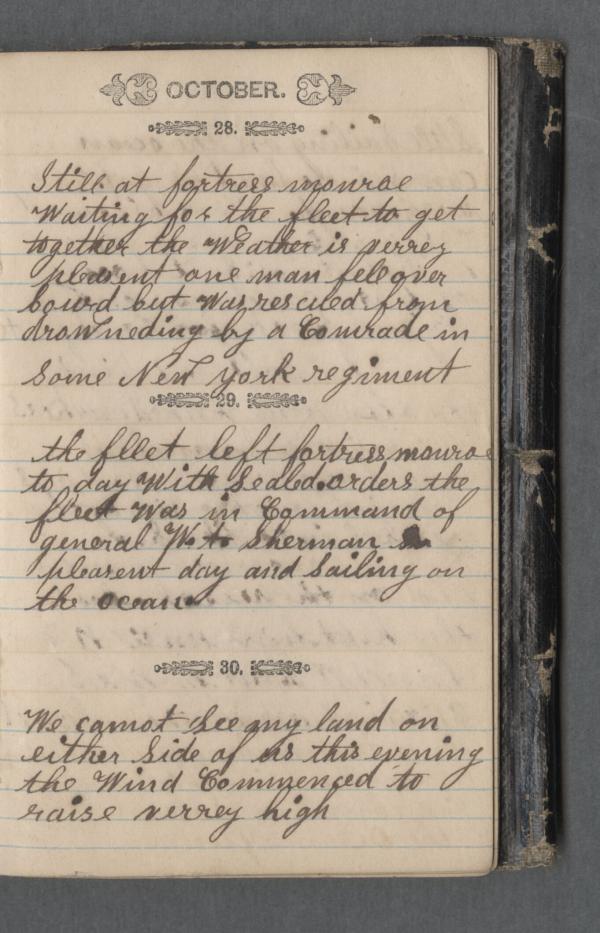 OCTOBER.
28.
Still at fortress monroe
Waiting for the fleet to get
together the Weather is verrey
pleasent one man fell over
bourd but Was rescued from
drowneding by a Comrade in
Some New york regiment
29.
the fllet left fortress monroe
to day With Sealed orders the
fleet Was in Command of
general W. t. Sherman
pleasent day and Sailing on
the ocean
30.
We cannot See any land on
either Side of us this evening
the Wind Commenced to
raise verrey high